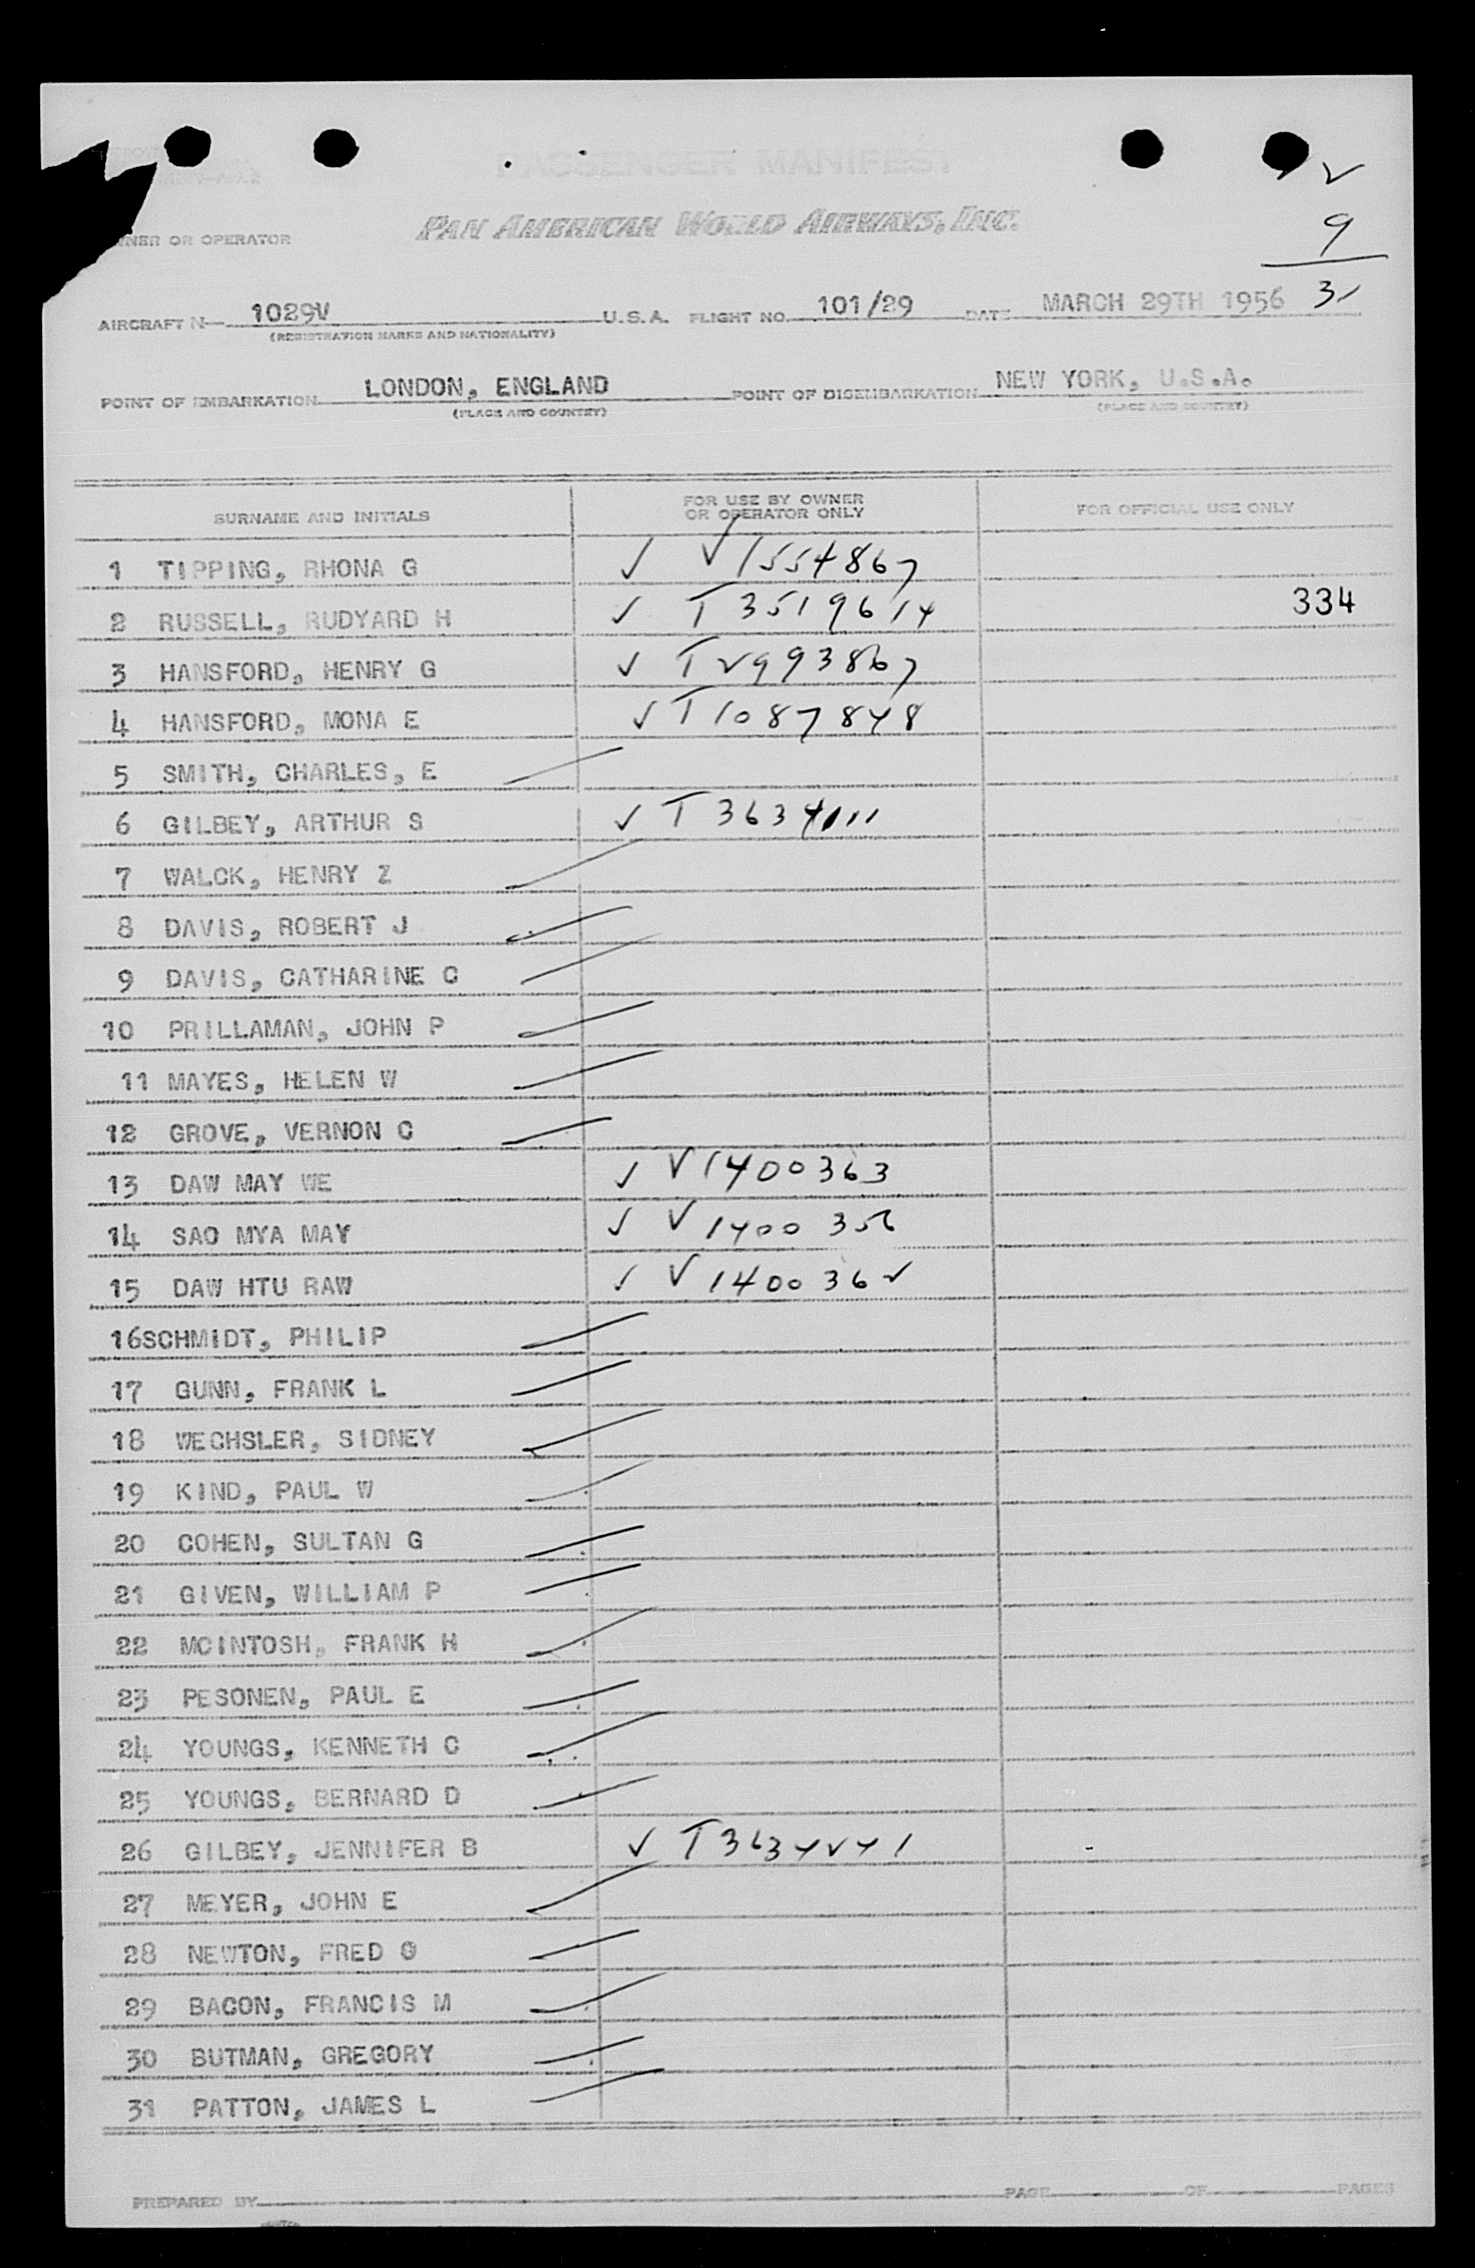 PASSENGER MANIFEST
PAN AMERICAN WORLD AIRWAYS, INC.
OWNER OR OPERATOR
9
31
AIRCRAFT N 1029V U.S.A. FLIGHT NO. 101/29 DATE MARCH 29TH 1956
(REGISTRATION MARKS AND NATIONALITY)
POINT OF EMBARKATION LONDON, ENGLAND POINT OF DISEMBARKATION NEW YORK, U.S.A.
(PLACE AND COUNTRY) (PLACE AND COUNTRY)
SURNAME AND INITIALS FOR USE BY OWNER OR OPERATOR ONLY FOR OFFICIAL USE ONLY
1 TIPPING, RHONA G ✓ V1554867
2 RUSSELL, RUDYARD H ✓ T3519614 334
3 HANSFORD, HENRY G ✓ T2993867
4 HANSFORD, MONA E ✓ T1087848
5 SMITH, CHARLES, E
6 GILBEY, ARTHUR S ✓ T3634111
7 WALCK, HENRY Z
8 DAVIS, ROBERT J
9 DAVIS, CATHARINE C
10 PRILLAMAN, JOHN P
11 MAYES, HELEN W
12 GROVE, VERNON C
13 DAW MAY WE ✓ V1400363
14 SAO MYA MAY ✓ V1400356
15 DAW HTU RAW ✓ V1400362
16SCHMIDT, PHILIP
17 GUNN, FRANK L
18 WECHSLER, SIDNEY
19 KIND, PAUL W
20 COHEN, SULTAN G
21 GIVEN, WILLIAM P
22 MCINTOSH, FRANK H
23 PESONEN, PAUL E
24 YOUNGS, KENNETH C
25 YOUNGS, BERNARD D
26 GILBEY, JENNIFER B ✓ T3634241
27 MEYER, JOHN E
28 NEWTON, FRED O
29 BACON, FRANCIS M
30 BUTMAN, GREGORY
31 PATTON, JAMES L
PREPARED BY PAGE OF PAGES